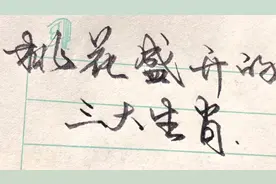 桃花盛开的
三大生肖.